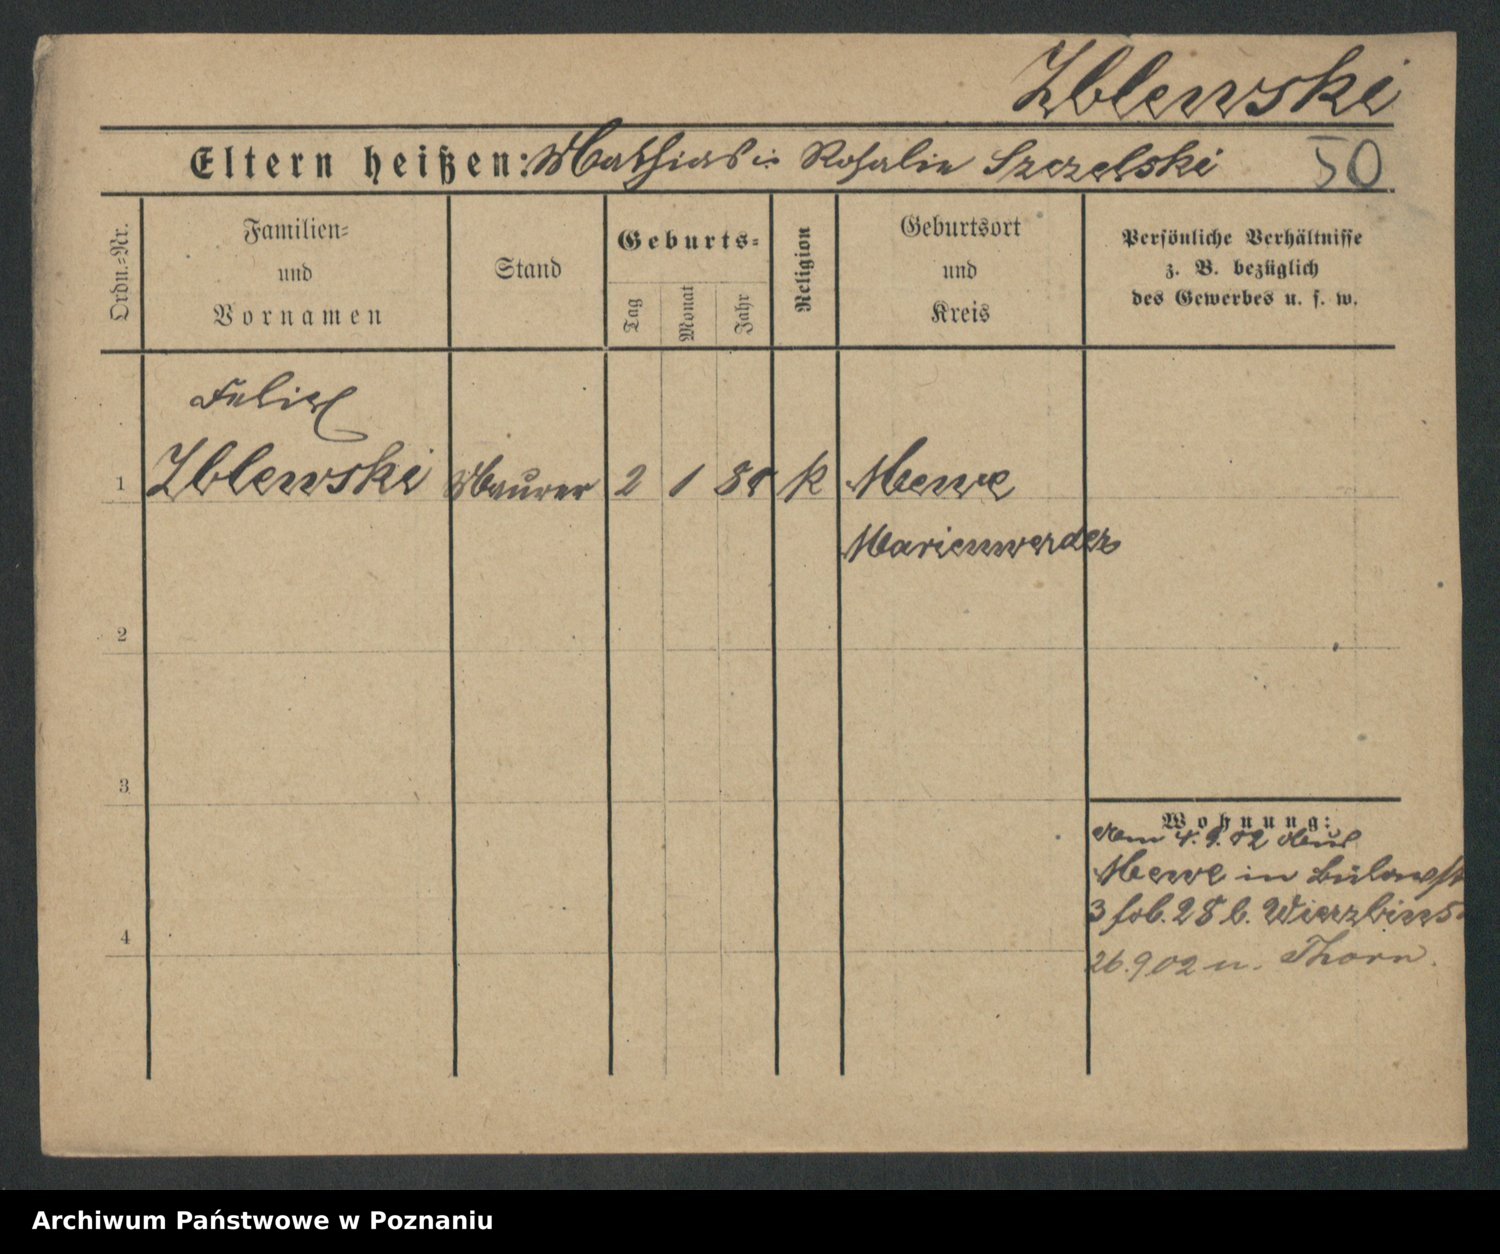 Zblewski
Eltern heißen: Mathias u. Rosalie Szczelski
50
Ordn.-Nr.
Familien-
und
Vornamen
Stand
Geburts-
Tag
Monat
Jahr
Religion
Geburtsort
und
Kreis
Persönliche Verhältnisse
z. B. bezüglich
des Gewerbes u. s. w.
Felix
1 Zblewski Maurer 2 1 81 k Mewe
Marienwerder
2
3
4
Wohnung:
4. 9. 02
Mewe in Bülowst
3 28 b.
26.9 02 n. Thorn.
Archiwum Państwowe w Poznaniu